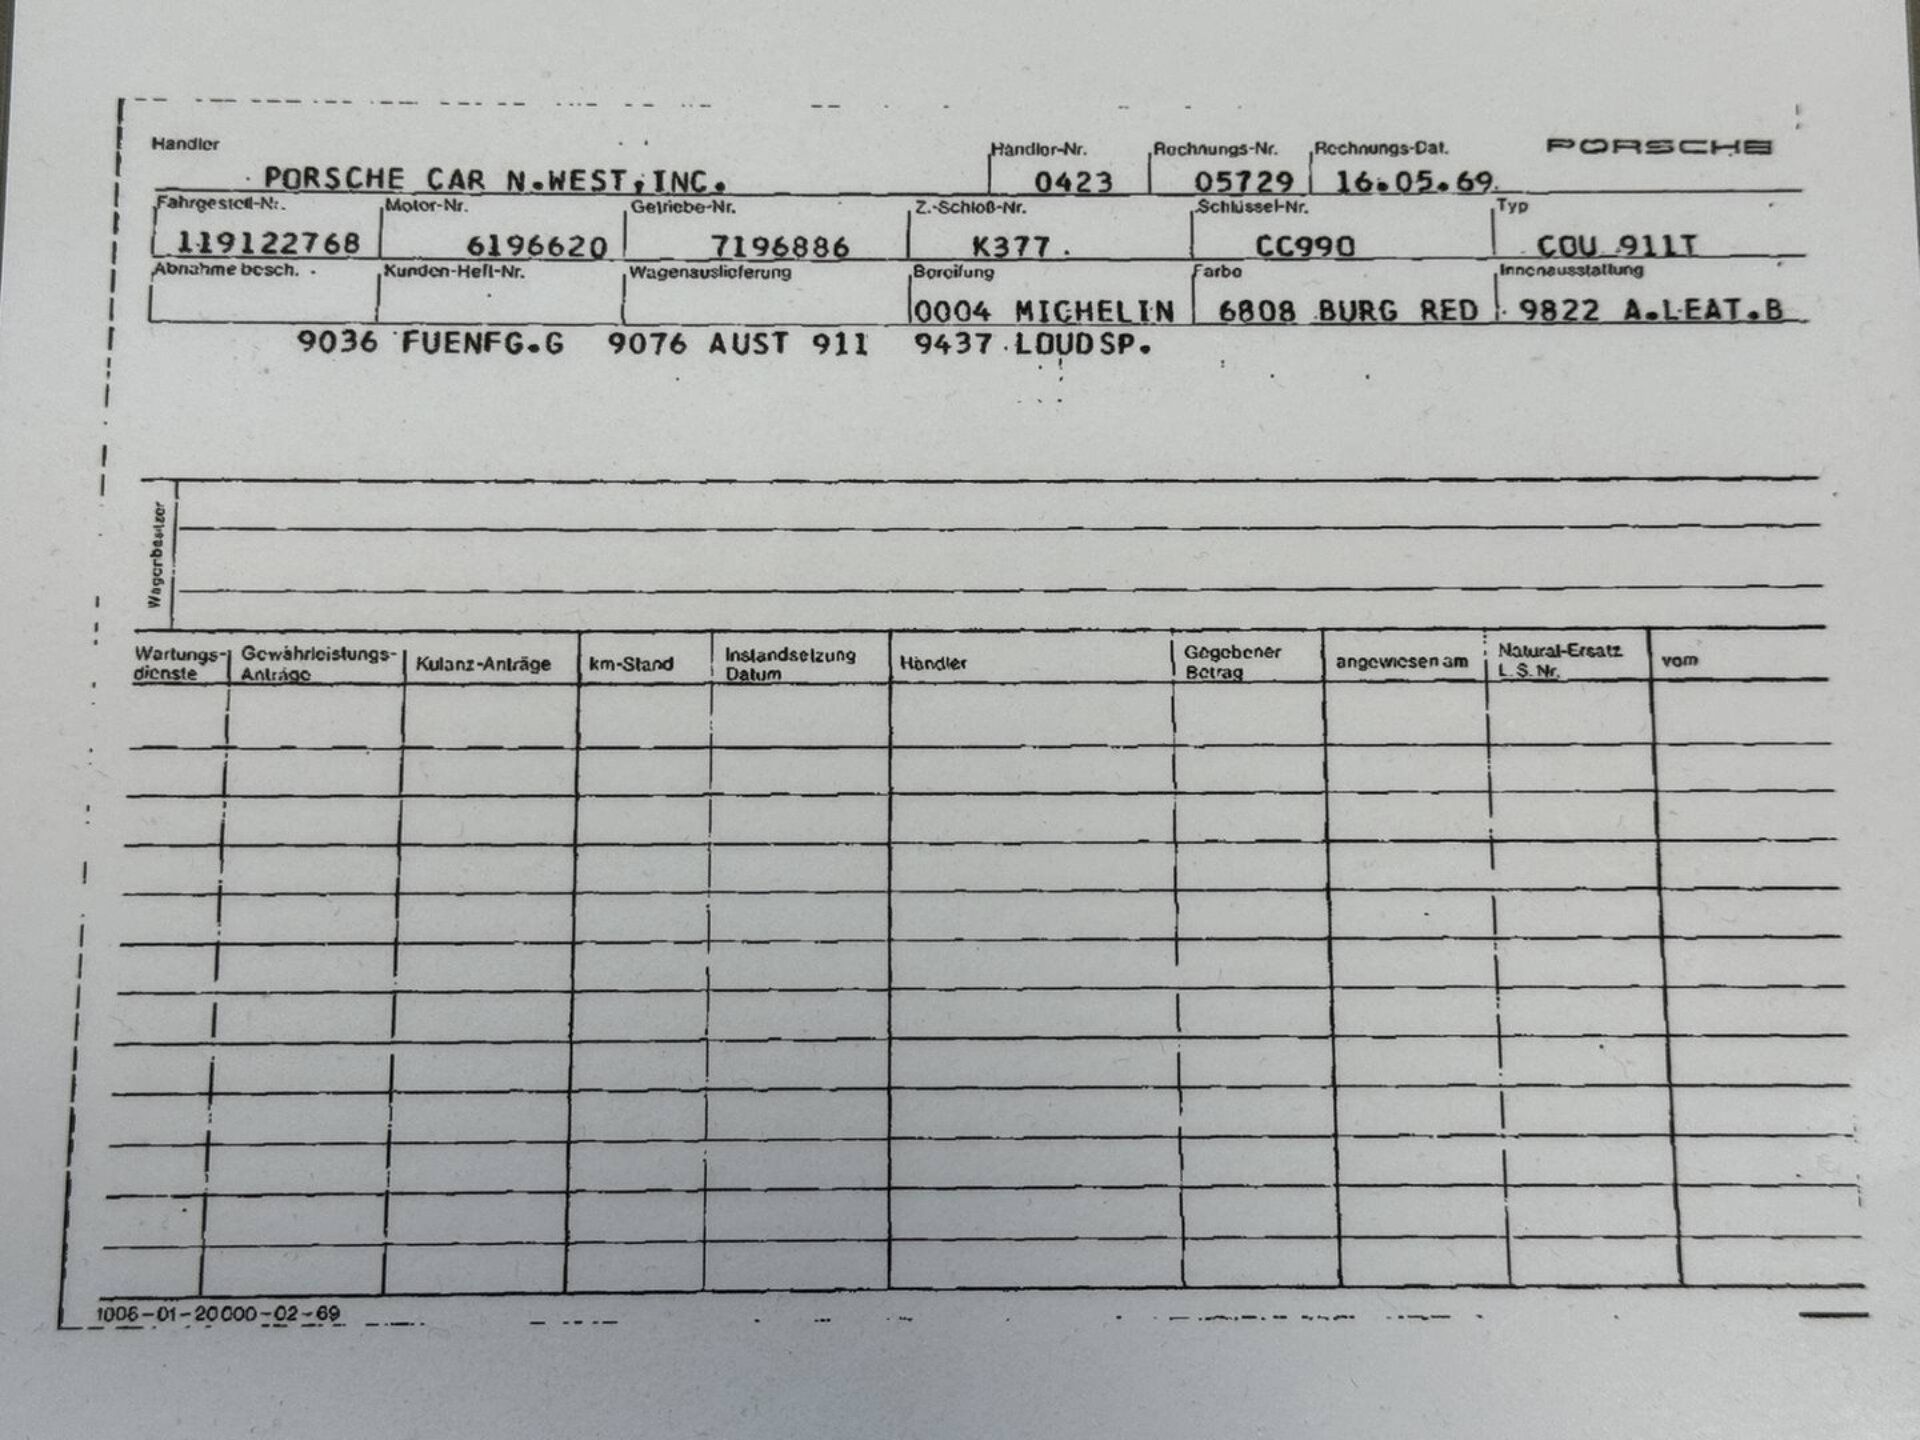 Händler Händler-Nr. Rechnungs-Nr. Rechnungs-Dat. PORSCHE
PORSCHE CAR N.WEST,INC. 0423 05729 16.05.69
Fahrgestell-Nr. Motor-Nr. Getriebe-Nr. Z.-Schloß-Nr. Schlüssel-Nr. Typ
119122768 6196620 7196886 K377 CC990 COU 911T
Abnahme besch. Kunden-Heft-Nr. Wagenauslieferung Bereifung Farbe Innenausstattung
0004 MICHELIN 6808 BURG RED 9822 A.LEAT.B
9036 FUENFG.G 9076 AUST 911 9437 LOUDSP.
Wagenbesitzer
Wartungs- Gewährleistungs- Kulanz-Anträge km-Stand Instandsetzung Händler Gegebener angewiesen am Natural-Ersatz vom
dienste Anträge Datum Betrag L.S.Nr.
1006-01-20000-02-69